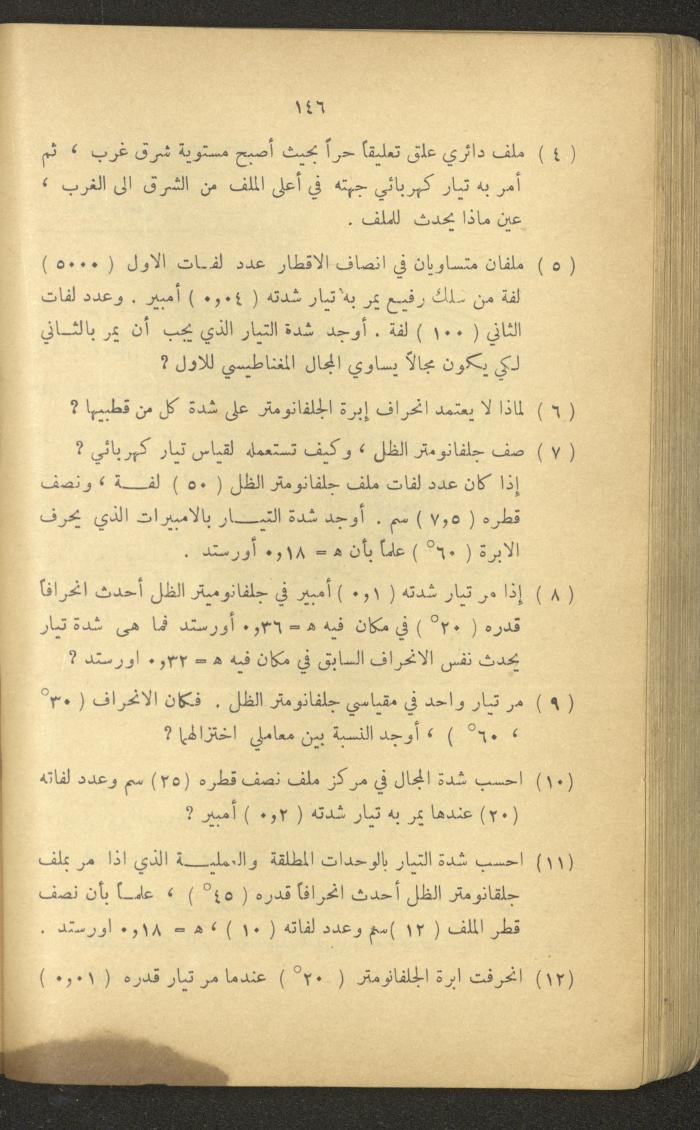 ١٤٦
( ٤ ) ملف دائري علق تعليقاً حراً بحيث أصبح مستوية شرق غرب ، ثم
أمر به تيار كهربائي جهته في أعلى الملف من الشرق الى الغرب ،
عين ماذا يحدث للملف .
( ٥ ) ملفان متساويان في انصاف الاقطار عدد لفات الاول ( ٥٠٠٠ )
لفة من سلك رفيع يمر به تيار شدته ( ٠,٠٤ ) أمبير . وعدد لفات
الثاني ( ١٠٠ ) لفة . أوجد شدة التيار الذي يجب أن يمر بالثاني
لكي يكون مجالاً يساوي المجال المغناطيسي للاول ؟
( ٦ ) لماذا لا يعتمد انحراف إبرة الجلفانومتر على شدة كل من قطبيها ؟
( ٧ ) صف جلفانومتر الظل ، وكيف تستعمله لقياس تيار كهربائي ؟
إذا كان عدد لفات ملف جلفانومتر الظل ( ٥٠ ) لفة ، ونصف
قطره ( ٧,٥ ) سم . أوجد شدة التيار بالامبيرات الذي يحرف
الابرة ( ٦٠° ) علماً بأن ه = ٠,١٨ أورستد .
( ٨ ) إذا مر تيار شدته ( ٠,١ ) أمبير في جلفانوميتر الظل أحدث انحرافاً
قدره ( ٢٠° ) في مكان فيه ه = ٠,٣٦ أورستد فما هى شدة تيار
يحدث نفس الانحراف السابق في مكان فيه ه = ٠,٣٢ اورستد ؟
( ٩ ) مر تيار واحد في مقياسي جلفانومتر الظل . فكان الانحراف ( ٣٠°
، ٦٠° ) ، أوجد النسبة بين معاملي اختزالهما ؟
(١٠) احسب شدة المجال في مركز ملف نصف قطره (٢٥) سم وعدد لفاته
(٢٠) عندها يمر به تيار شدته ( ٠,٢ ) أمبير ؟
(١١) احسب شدة التيار بالوحدات المطلقة والعملية الذي اذا مر بملف
جلقانومتر الظل أحدث انحرافاً قدره ( ٤٥° ) ، علماً بأن نصف
قطر الملف ( ١٢ )سم وعدد لفاته ( ١٠ ) ، ه = ٠,١٨ اورستد .
(١٢) انحرفت ابرة الجلفانومتر ( ٢٠° ) عندما مر تيار قدره ( ٠,٠١ )